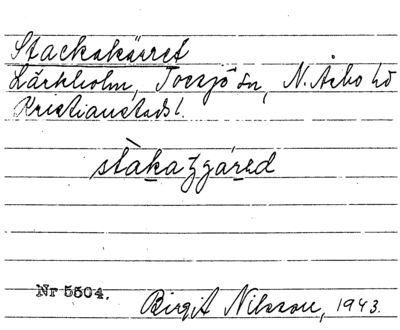 Stackakärret
Lärkholm, Tossjö sn, N. Åsbo hd
Kristianstads l.
Nr 5504.
Birgit Nilsson, 1943.